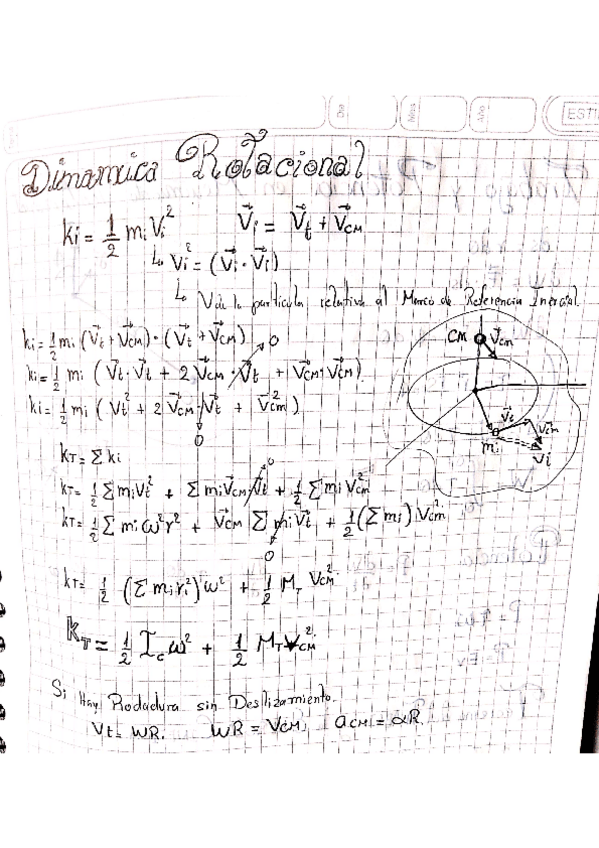 Dia
Mes
Año
ESTI
Dinamica Rotacional
Ki = 1/2 mi Vi² V⃗i = V⃗t + V⃗CM
↳ Vi² = (V⃗i · V⃗i)
↳ V de la particula relativa al Marco de Referencia Inercial.
Ki = 1/2 mi (V⃗t + V⃗CM) · (V⃗t + V⃗CM)
Ki = 1/2 mi (V⃗t · V⃗t + 2 V⃗CM · V⃗t + V⃗CM · V⃗CM) 0
Ki = 1/2 mi (Vt² + 2 V⃗CM · V⃗t + V⃗CM²)
0
CM V⃗cm
V⃗t V⃗cm
mi V⃗i
KT = Σ Ki
KT = 1/2 Σ mi Vt² + Σ mi V⃗CM · V⃗t + 1/2 Σ mi VCM² 0
KT = 1/2 Σ mi ω² r² + V⃗CM Σ mi V⃗t + 1/2 (Σ mi) VCM²
0
KT = 1/2 (Σ mi ri²) ω² + 1/2 MT VCM²
KT = 1/2 Ic ω² + 1/2 MT VCM²
Si Hay Rodadura sin Deslizamiento.
Vt = WR. WR = VCM, aCM = αR.